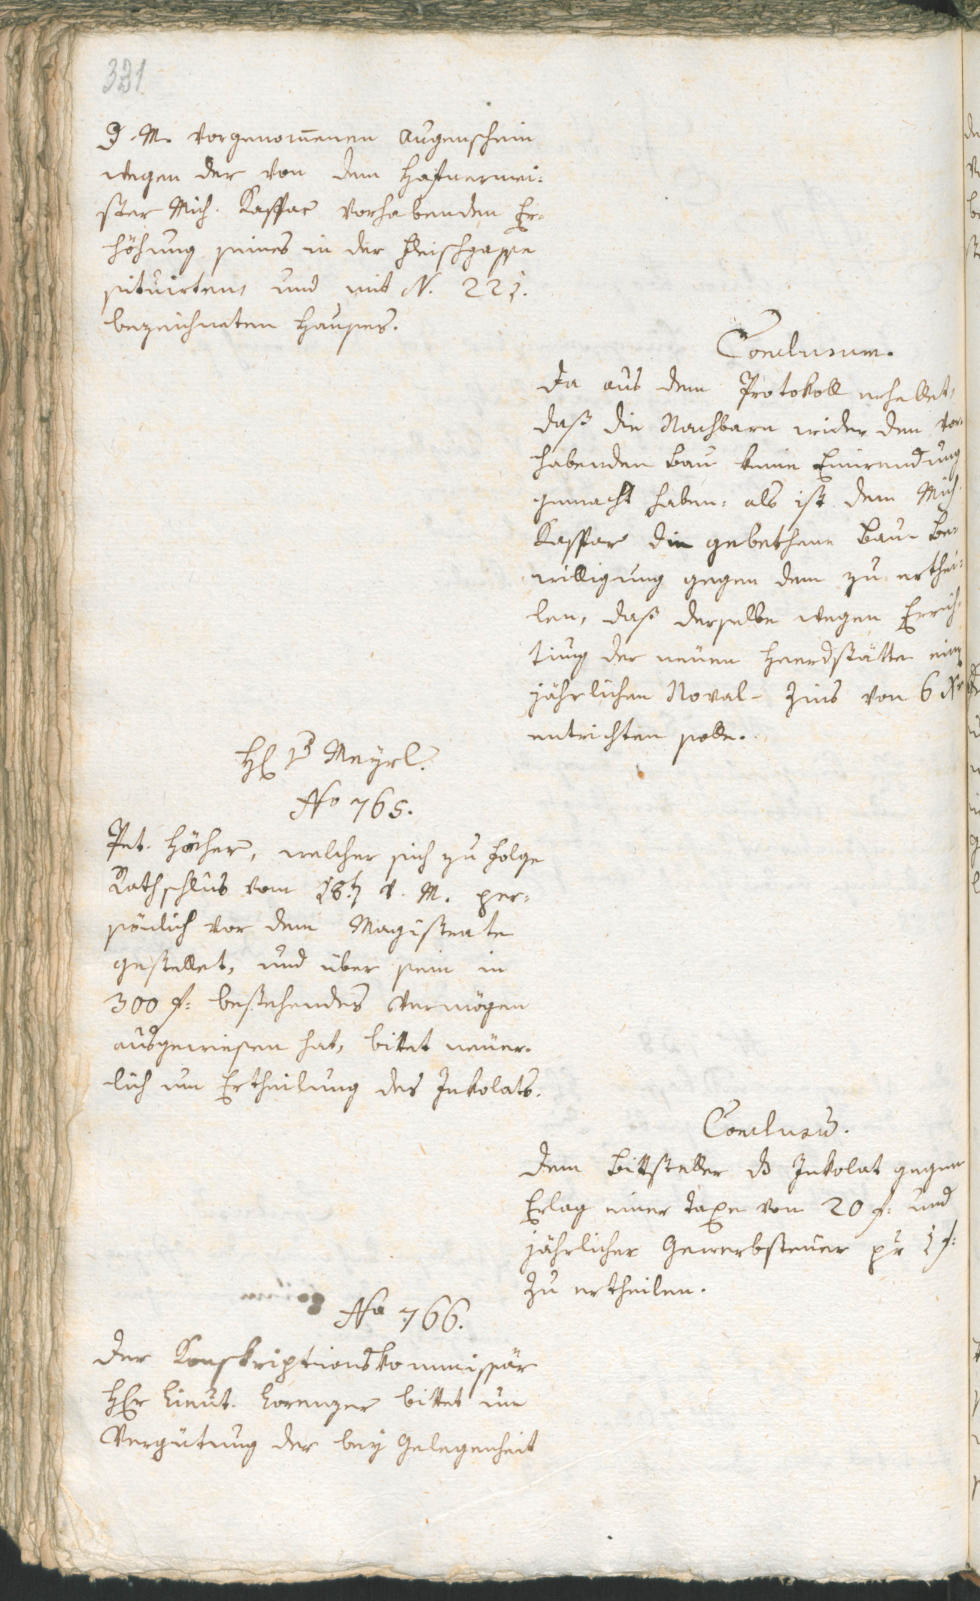 331
d. M. vorgenommenen Augenschein
wegen der von dem Hafnermei-
ster Mich. Kassar vorhabenden Er-
höhung seines in der Fleischgasse
situirten, und mit N. 221.
bezeichneten Hauses.
Conclusum.
Da aus dem Protokoll erhellet,
daß die Nachbarn wider den vor-
habenden Bau keine Einwendung
gemacht haben: als ist dem Mich.
Kassar die gebethene Bau-Be-
willigung gegen dem zu erthei-
len, daß derselbe wegen Errich-
tung der neuen Heerdstätte einen
jährlichen Noval-Zins von 6 Xr
entrichten solle.
H. Meyrl.
No 765.
Pet. Höcher, welcher sich zu Folge
Rathschlus vom 18t. v. M. per-
sönlich vor dem Magistrate
gestellet, und über sein in
300 f: bestehendes Vermögen
ausgewiesen hat, bittet neuer-
lich um Ertheilung des Inkolats.
Conclusum.
Dem Bittsteller das Inkolat gegen
Erlag einer Taxe von 20 f: und
jährlicher Gewerbsteuer pr 1 f:
zu ertheilen.
No 766.
Der Konskriptionskommissär
Hr Lieut. Lorenzer bittet um
Vergütung der bey Gelegenheit